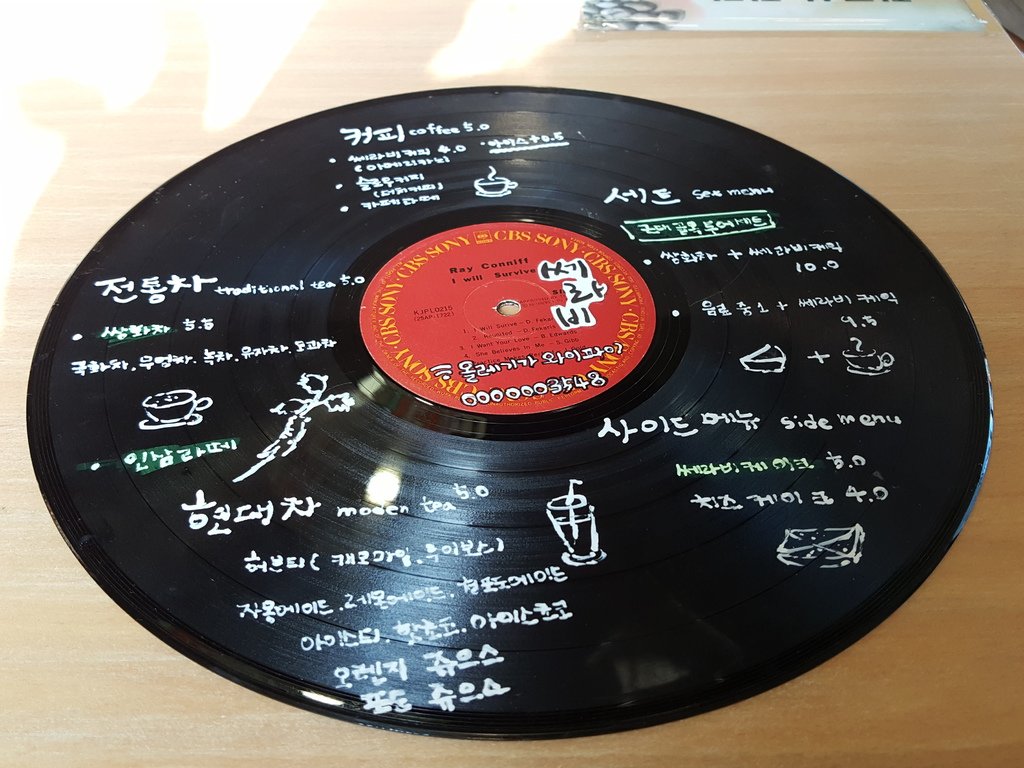 커피 coffee 5.0
· 쎄라비커피 4.0 · 아이스 +0.5
(아메리카노)
· 슬로우커피
(더치커피)
· 카페라떼
세트 set menu
· 쌍화차 + 쎄라비케익
10.0
· 음료 중 1 + 쎄라비 케익
9.5
+ ?
전통차 traditional tea 5.0
· 쌍화차 5.5
국화차. 우엉차. 녹차. 유자차. 모과차
· 인삼라떼
CBS SONY CBS SONY CBS SONY CBS SONY
Ray Conniff
I will Survive
쎄라비
KJPL0215
(25AP-1722)
1. I Will Surive – D. Fekaris
2. Reunited – D. Fekaris
3. I Want Your Love – B. Edwards
4. She Believes In Me – S. Gibb
올레기가 와이파이
8435400000
사이드 메뉴 side menu
쎄라비케이크 5.0
치즈 케이크 4.0
현대차 moden tea 5.0
허브티 ( 캐모마일. 루이보스)
자몽에이드. 레몬에이드. 청포도에이드
아이스티. 핫초코. 아이스초코
오렌지 쥬으스
포도 쥬으스